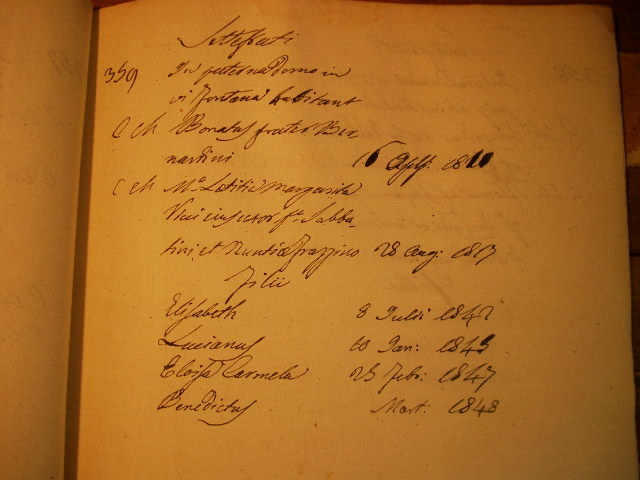 359 In paterna domo in
vi Fontana habitant
C ch Donatus frater Ber
nardini 16 1810
C ch Mª Letitia Margarita
uxor fª Sabba
tini et Nuntiæ Frazzino 28 Aug: 1817
Filii
Elisabeth 8 Julii 1842
Lucianus 10 Jan: 1845
Eloisa Carmela 25 Feb: 1847
Benedictus Mart: 1848